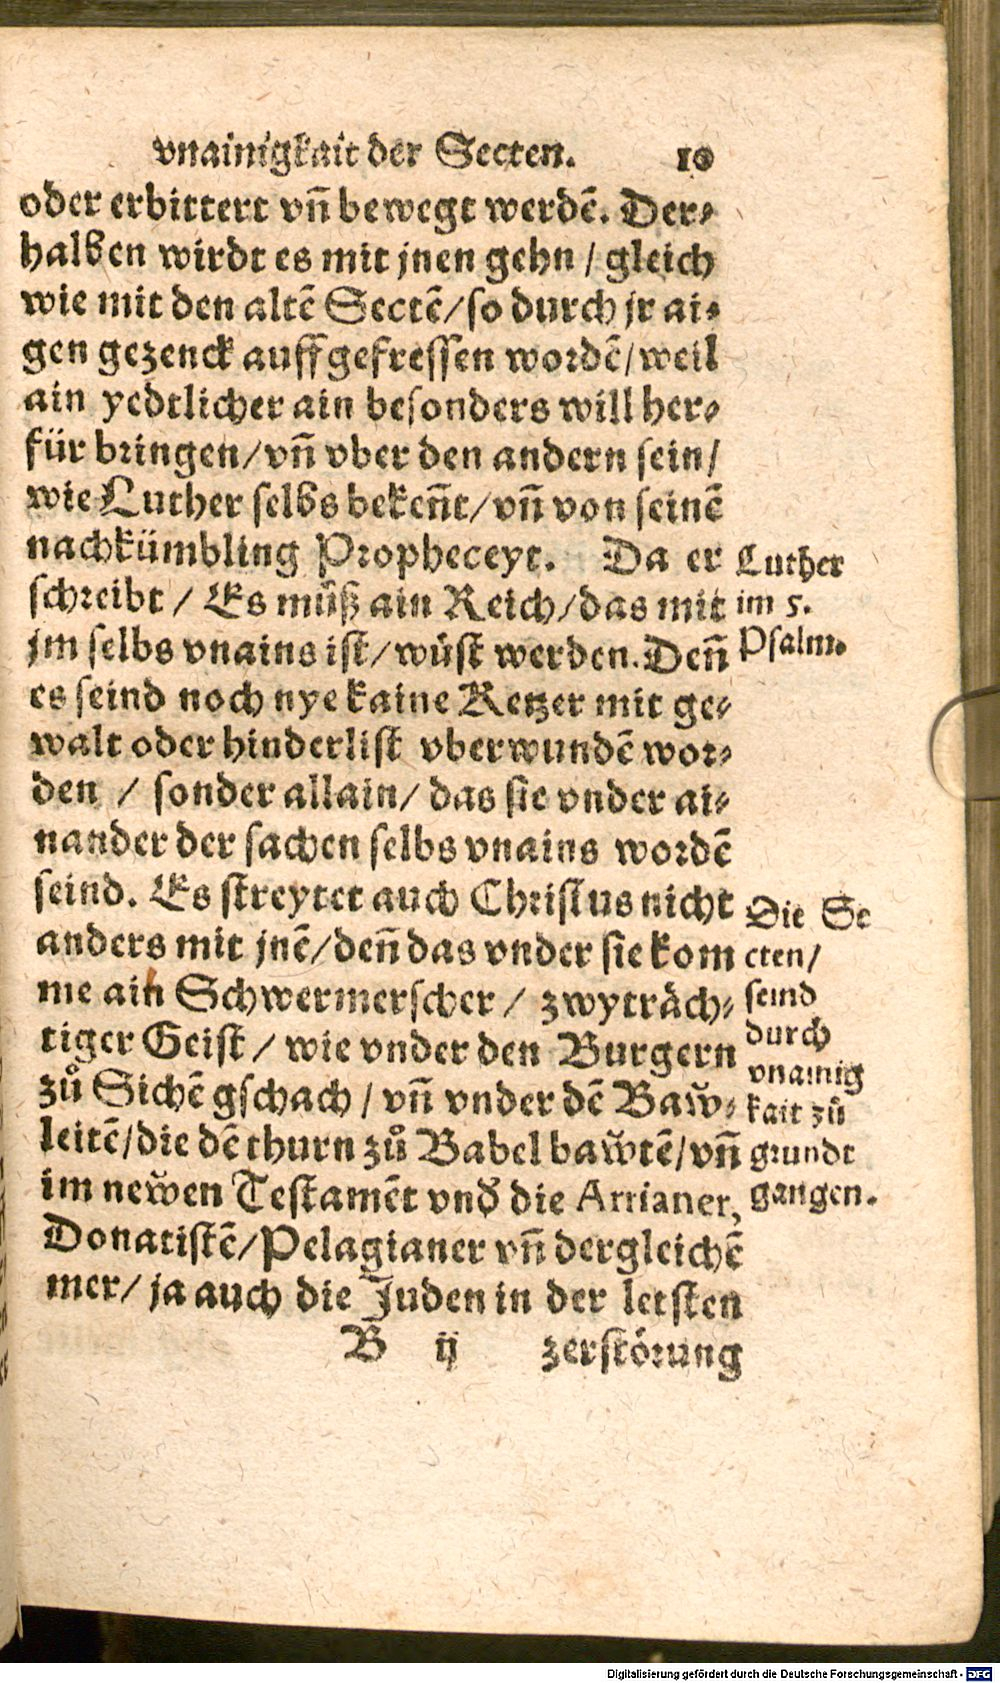 vnainigkait der Secten. 10
oder erbittert vñ bewegt werdē. Der⸗
halben wirdt es mit jnen gehn / gleich
wie mit den altē Sectē/so durch jr ai⸗
gen gezenck auffgefressen wordē/weil
ain yedtlicher ain besonders will her⸗
für bringen/vñ vber den andern sein/
wie Luther selbs bekeñt/vñ von seinē
nachkümbling Propheceyt. Da er
schreibt / Es müß ain Reich/das mit
jm selbs vnains ist/wüst werden. Deñ
es seind noch nye kaine Ketzer mit ge⸗
walt oder hinderlist vberwundē wor⸗
den / sonder allain/ das sie vnder ai⸗
nander der sachen selbs vnains wordē
seind. Es streytet auch Christus nicht
anders mit jnē/deñ das vnder sie kom
me ain Schwermerscher / zwyträch⸗
tiger Geist / wie vnder den Burgern
zů Sichē gschach / vñ vnder dē Baw̆⸗
leitē/die dē thurn zů Babel baw̆tē/vñ
im new̆en Testamēt vnd̕ die Arrianer,
Donatistē/Pelagianer vñ dergleichē
mer/ ja auch die Juden in der letsten
B ij zerstörung
Luther
im 5.
Psalm.
Die Se
cten/
seind
durch
vnainig
kait zů
grundt
gangen.
Digitalisierung gefördert durch die Deutsche Forschungsgemeinschaft - DFG